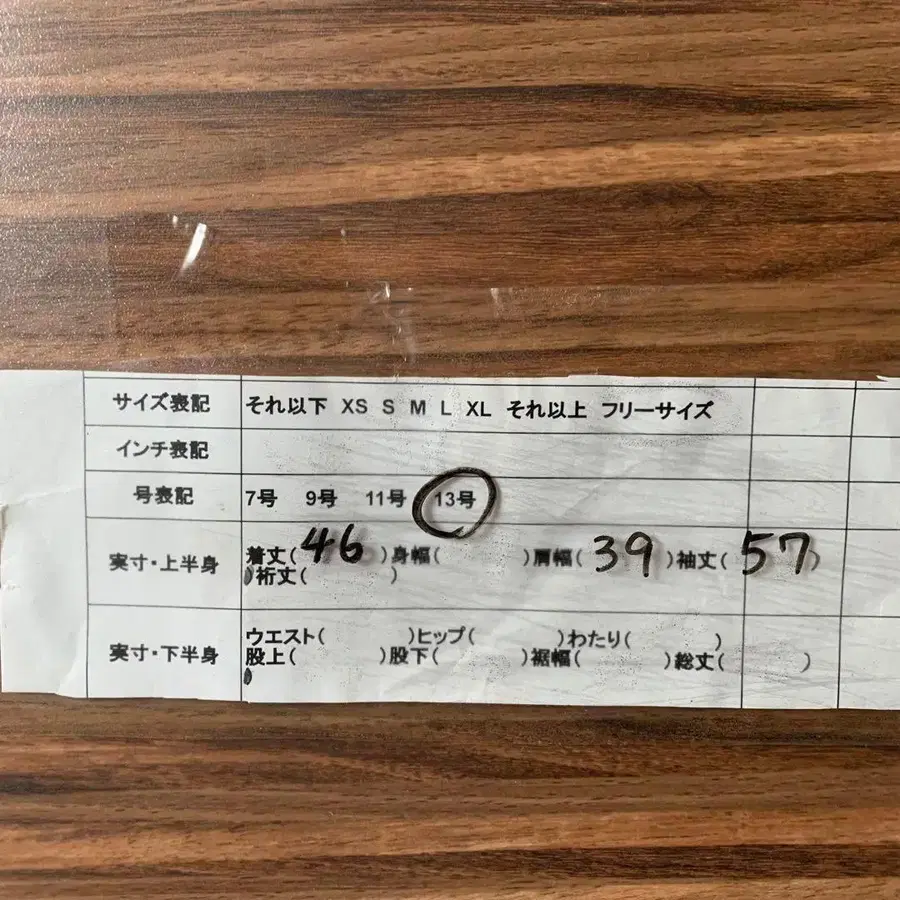 サイズ表記 それ以下 XS S M L XL それ以上 フリーサイズ
インチ表記
号表記 7号 9号 11号 13号
実寸・上半身 着丈(46)身幅( )肩幅(39)袖丈(57)
裄丈( )
実寸・下半身 ウエスト( )ヒップ( )わたり( )
股上( )股下( )裾幅( )総丈( )